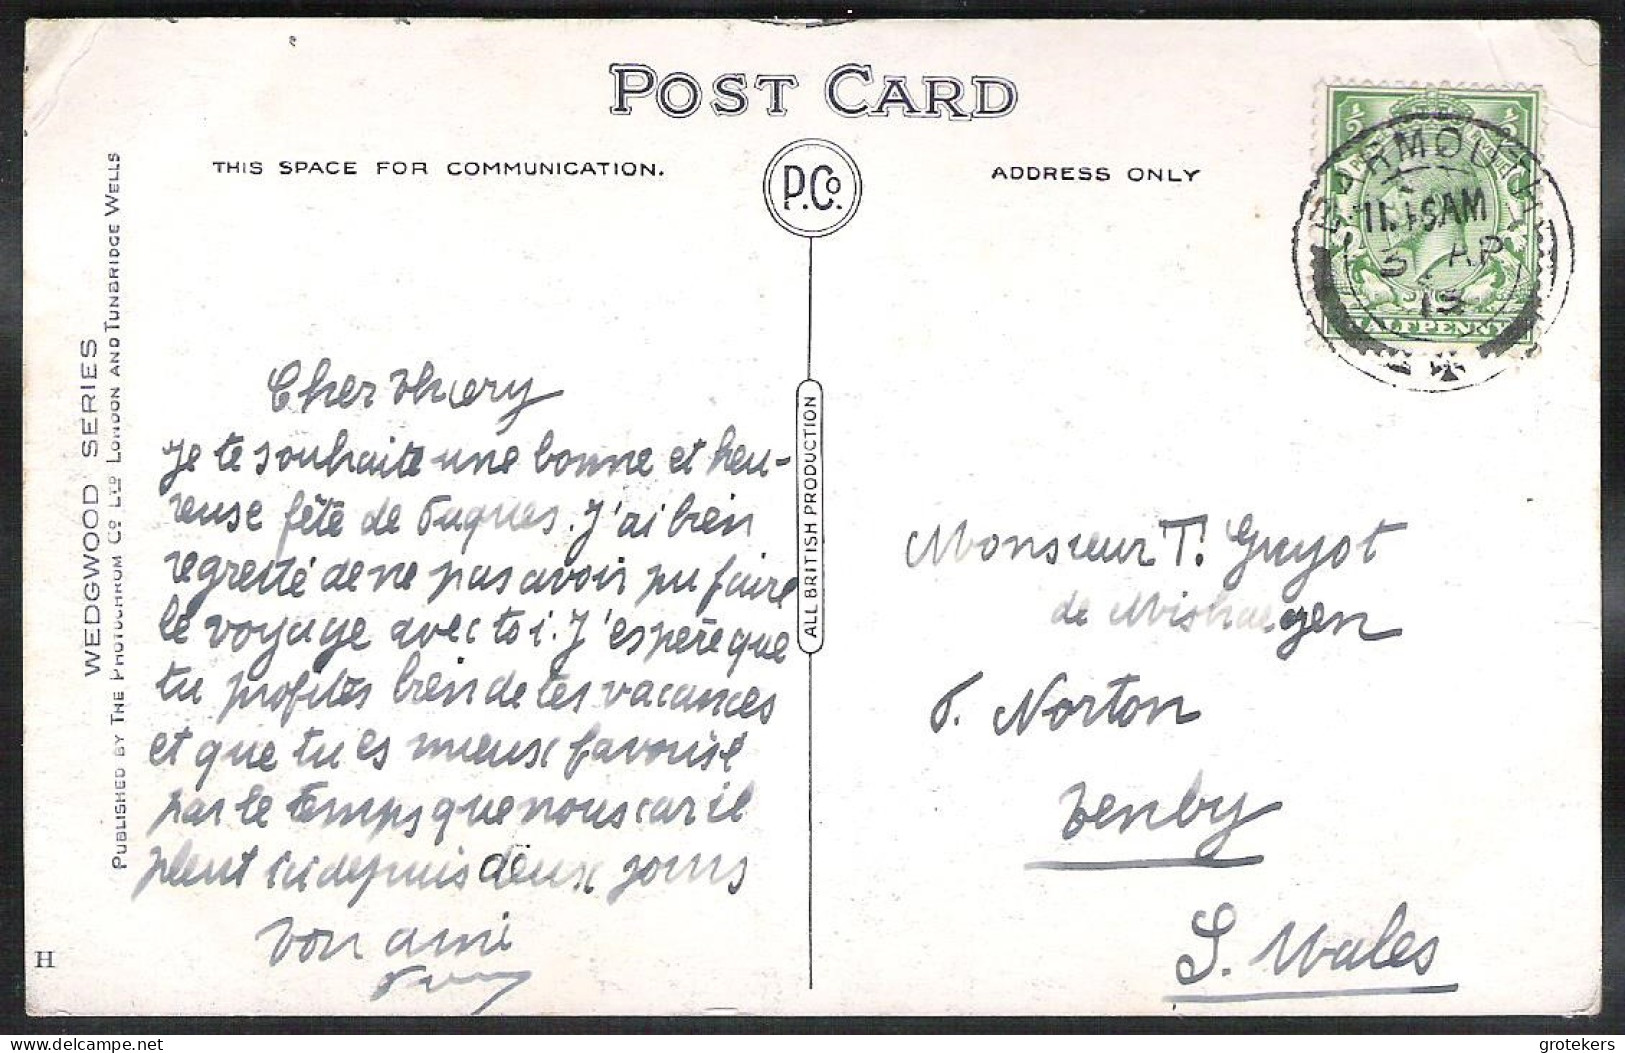 POST CARD
THIS SPACE FOR COMMUNICATION.
P.Co.
ADDRESS ONLY
BARMOUTH
11.15AM
3 AP
15
HALFPENNY
WEDGWOOD SERIES
PUBLISHED BY THE PHOTOCHROM CO LTD LONDON AND TUNBRIDGE WELLS
ALL BRITISH PRODUCTION
Cher Thiery
Je te souhaite une bonne et heu-
reuse fête de Paques. J'ai bien
regretté de ne pas avoir pu faire
le voyage avec toi. J'espère que
tu profites bien de tes vacances
et que tu es mieux favorisé
par le temps que nous car il
pleut ici depuis deux jours
Ton ami
H
Monsieur T. Guyot
de Mishaegen
P. Norton
Tenby
S. Wales
(c) delcampe.net
grotekers